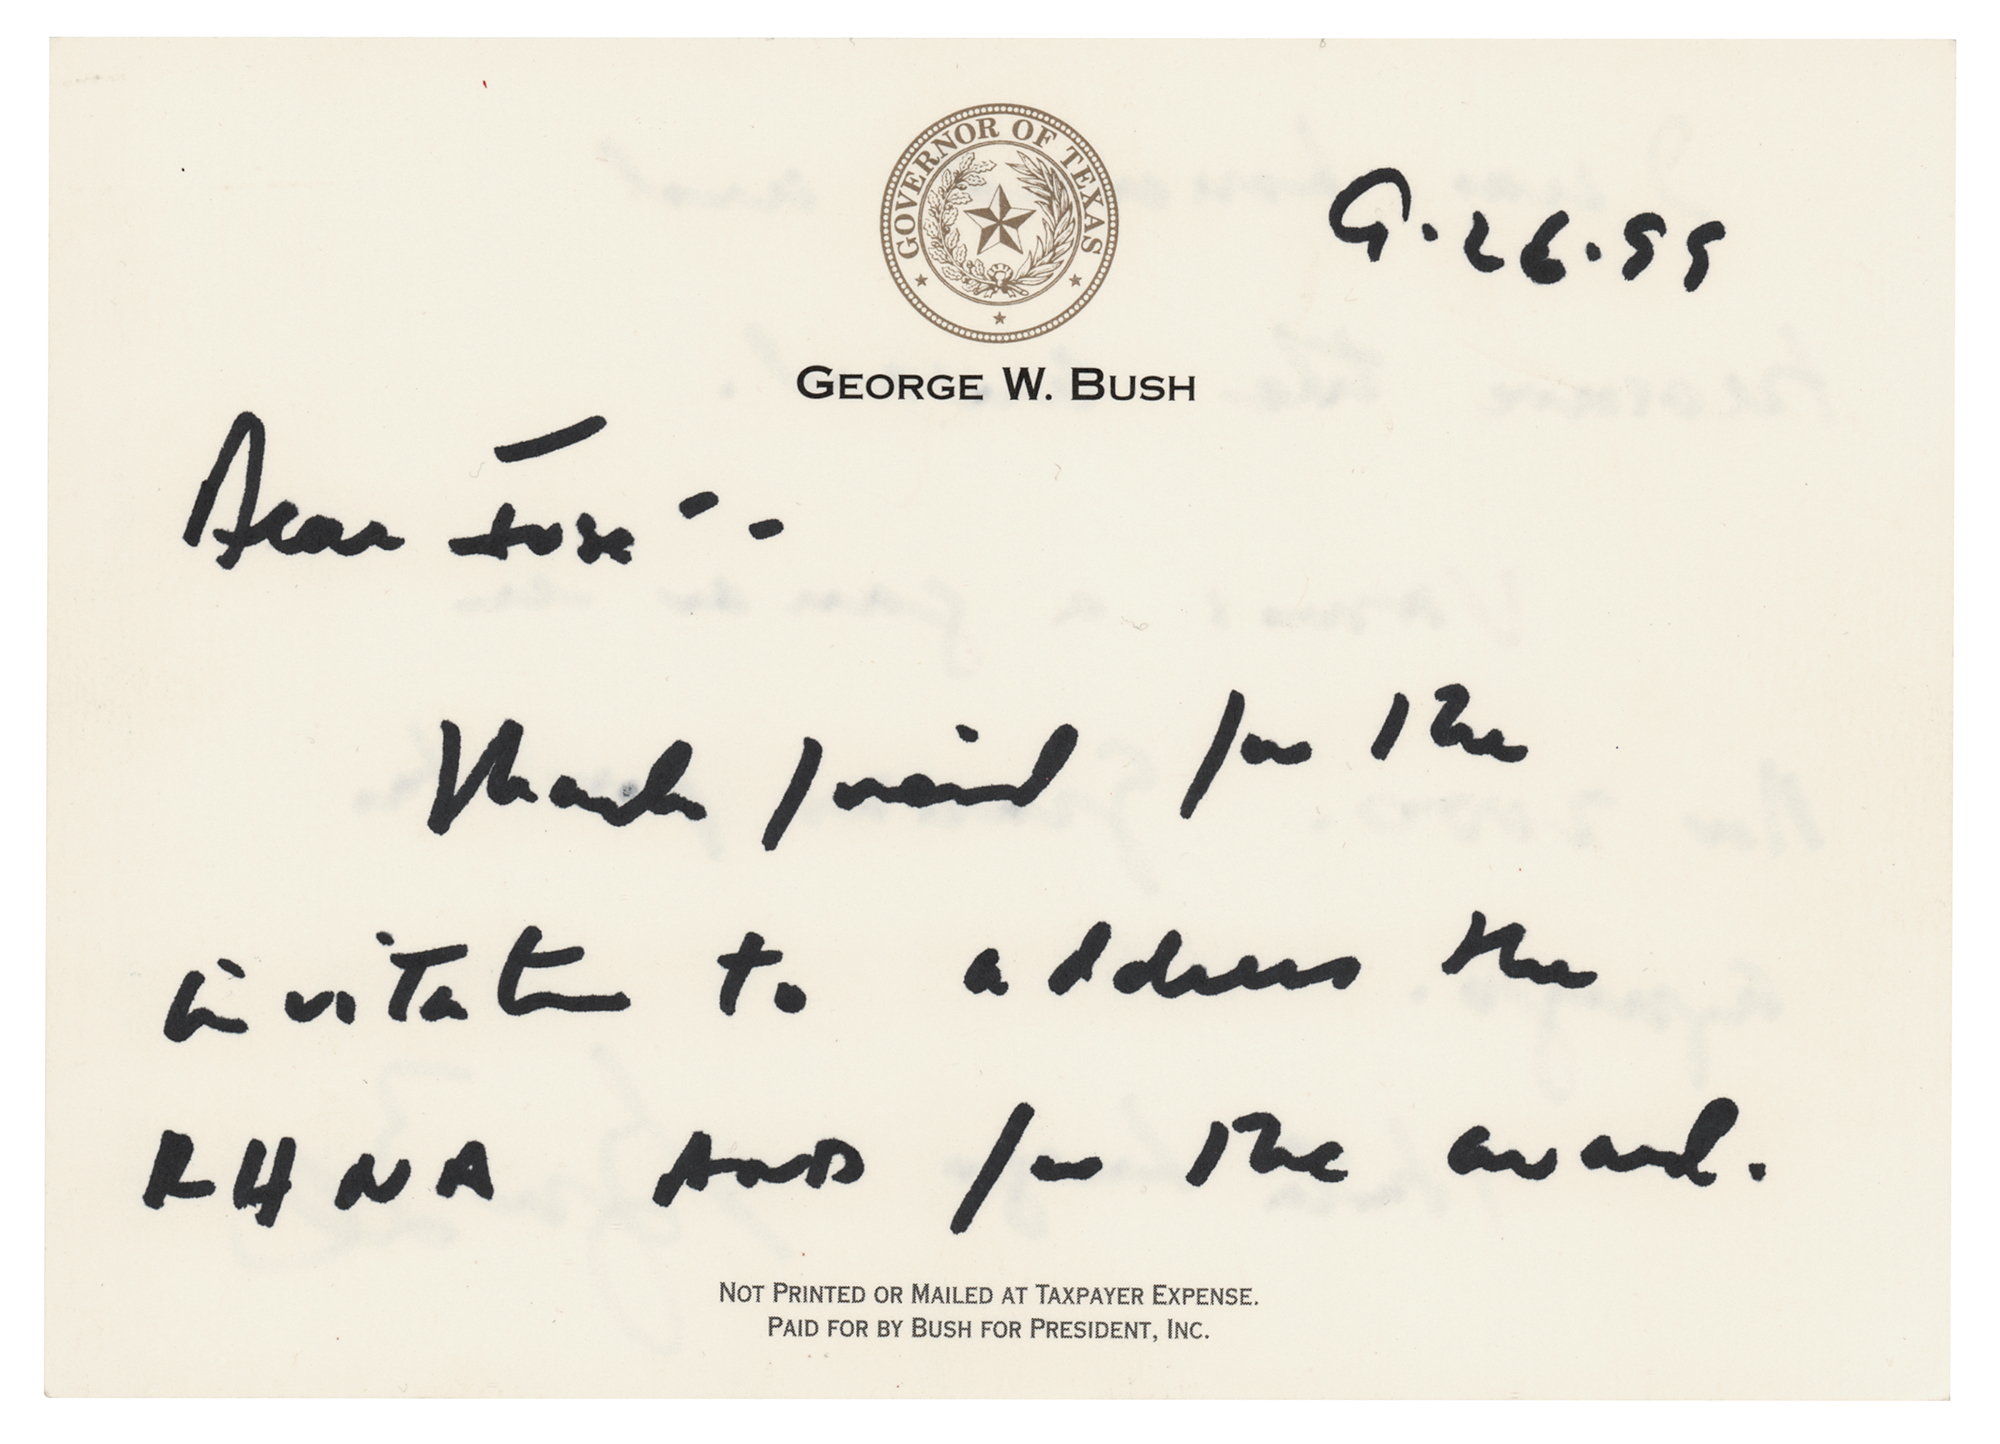 GOVERNOR OF TEXAS
9.26.99
GEORGE W. BUSH
Dear Jose --
Thanks friend for the
invitation to address the
RHNA AND for the award.
NOT PRINTED OR MAILED AT TAXPAYER EXPENSE.
PAID FOR BY BUSH FOR PRESIDENT, INC.